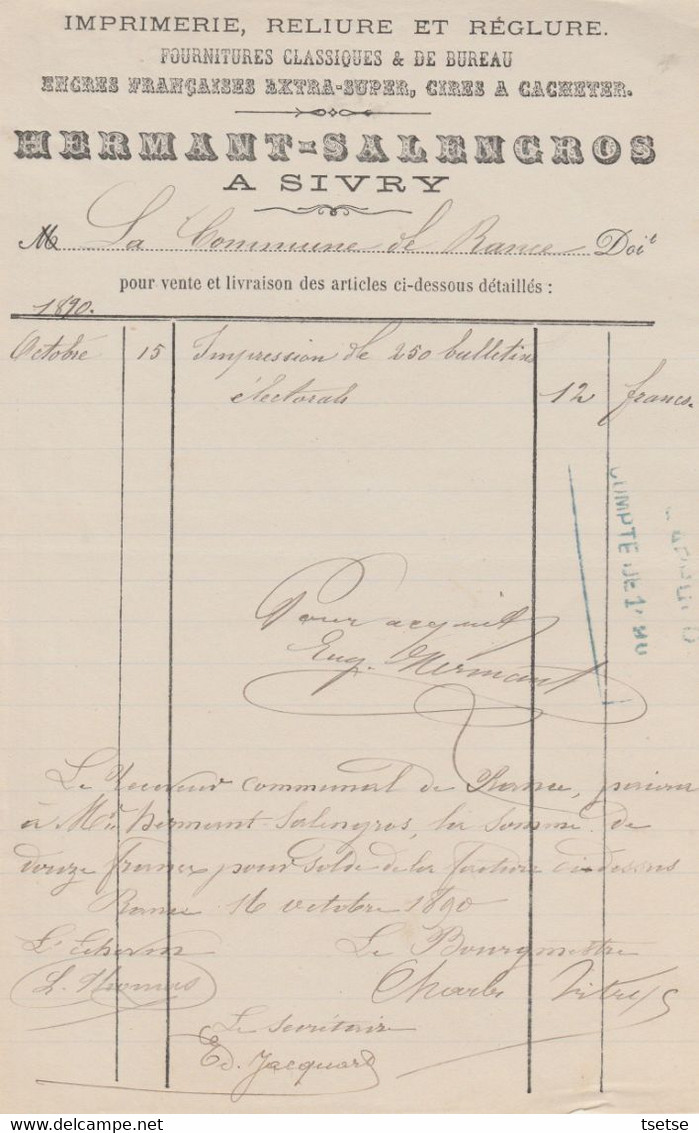 IMPRIMERIE, RELIURE ET RÉGLURE.
FOURNITURES CLASSIQUES & DE BUREAU
ENCRES FRANÇAISES EXTRA-SUPER, CIRES A CACHETER.
HERMANT-SALENGROS
A SIVRY
M La Commune de Rance Doit
pour vente et livraison des articles ci-dessous détaillés :
1890.
Octobre 15 Impression de 250 bulletins
électorals 12 francs.
COMPTE DE 1890
Pour acquit
Eug. Hermant
Le Receveur communal de Rance, paiera
à Mr Hermant-Salengros, la somme de
douze francs pour solde de la facture ci-dessus
Rance 16 octobre 1890
L'Echevin Le Bourgmestre
L. Thomas Charles
Le Secrétaire
Ed. Jacquard
tsetse